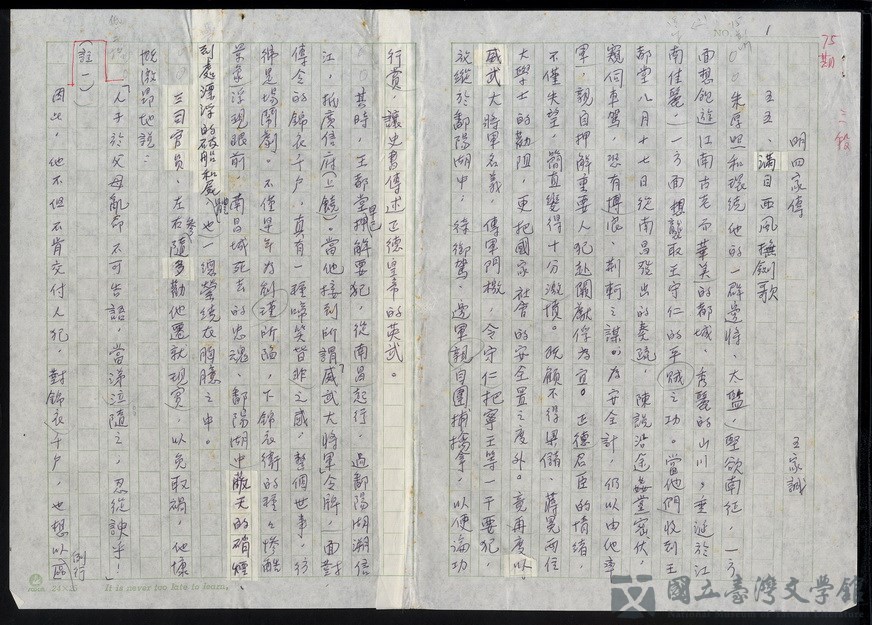 1
75期
三校
明四家傳
王家誠
五五、滿目西風撫劍歌
朱厚照和環繞他的一群邊將、太監,堅欲南征,一方
面想飽遊江南古老而華美的都城、秀麗的山川,重遊於江
南佳麗,一方面想襲取王守仁的平賊之功。當他們收到王
都堂八月十七日從南昌發出的奏疏,陳說沿途姦黨密伏,
窺伺車駕,恐有博浪、荊軻之謀。為安全計,仍以由他率
軍,親自押解重要人犯赴闕獻俘為宜。正德君臣的情緒,
不僅失望,簡直覺得十分激憤。既顧不得梁儲、蔣冕兩位
大學士的勸阻,更把國家社會的安全置之度外。竟再度以
威武大將軍名義,傳軍門檄,令守仁把寧王等一干要犯,
放縱於鄱陽湖中,待御駕、邊軍親自圍捕擒拿,以便論功
行賞,讓史書傳述正德皇帝的英武。
其時,王都堂早已押解要犯,從南昌起行,過鄱陽湖溯信
江,抵廣信府(上饒)。當他接到所謂「威武大將軍」令牌,面對
傳令的錦衣千戶,真有一種啼笑皆非之感,整個世事,彷
彿是場鬧劇。不僅早年為劉瑾所陷,下錦衣衛的種種慘酷
景象浮現眼前,南昌城死去的忠魂、鄱陽湖中蔽天的硝煙、
到處漂浮的破船和屍體,也一一縈繞在胸臆之中。
三司官員,左右參隨多勸他遷就現實,以免取禍,他慷
慨激昂地說:
「人子於父母亂命不可告語,當涕泣隨之,忍從諛乎!」
(註一)
因此,他不但不肯交付人犯,對錦衣千戶,也想以區
例行
It is never too late to learn.
國立臺灣文學館